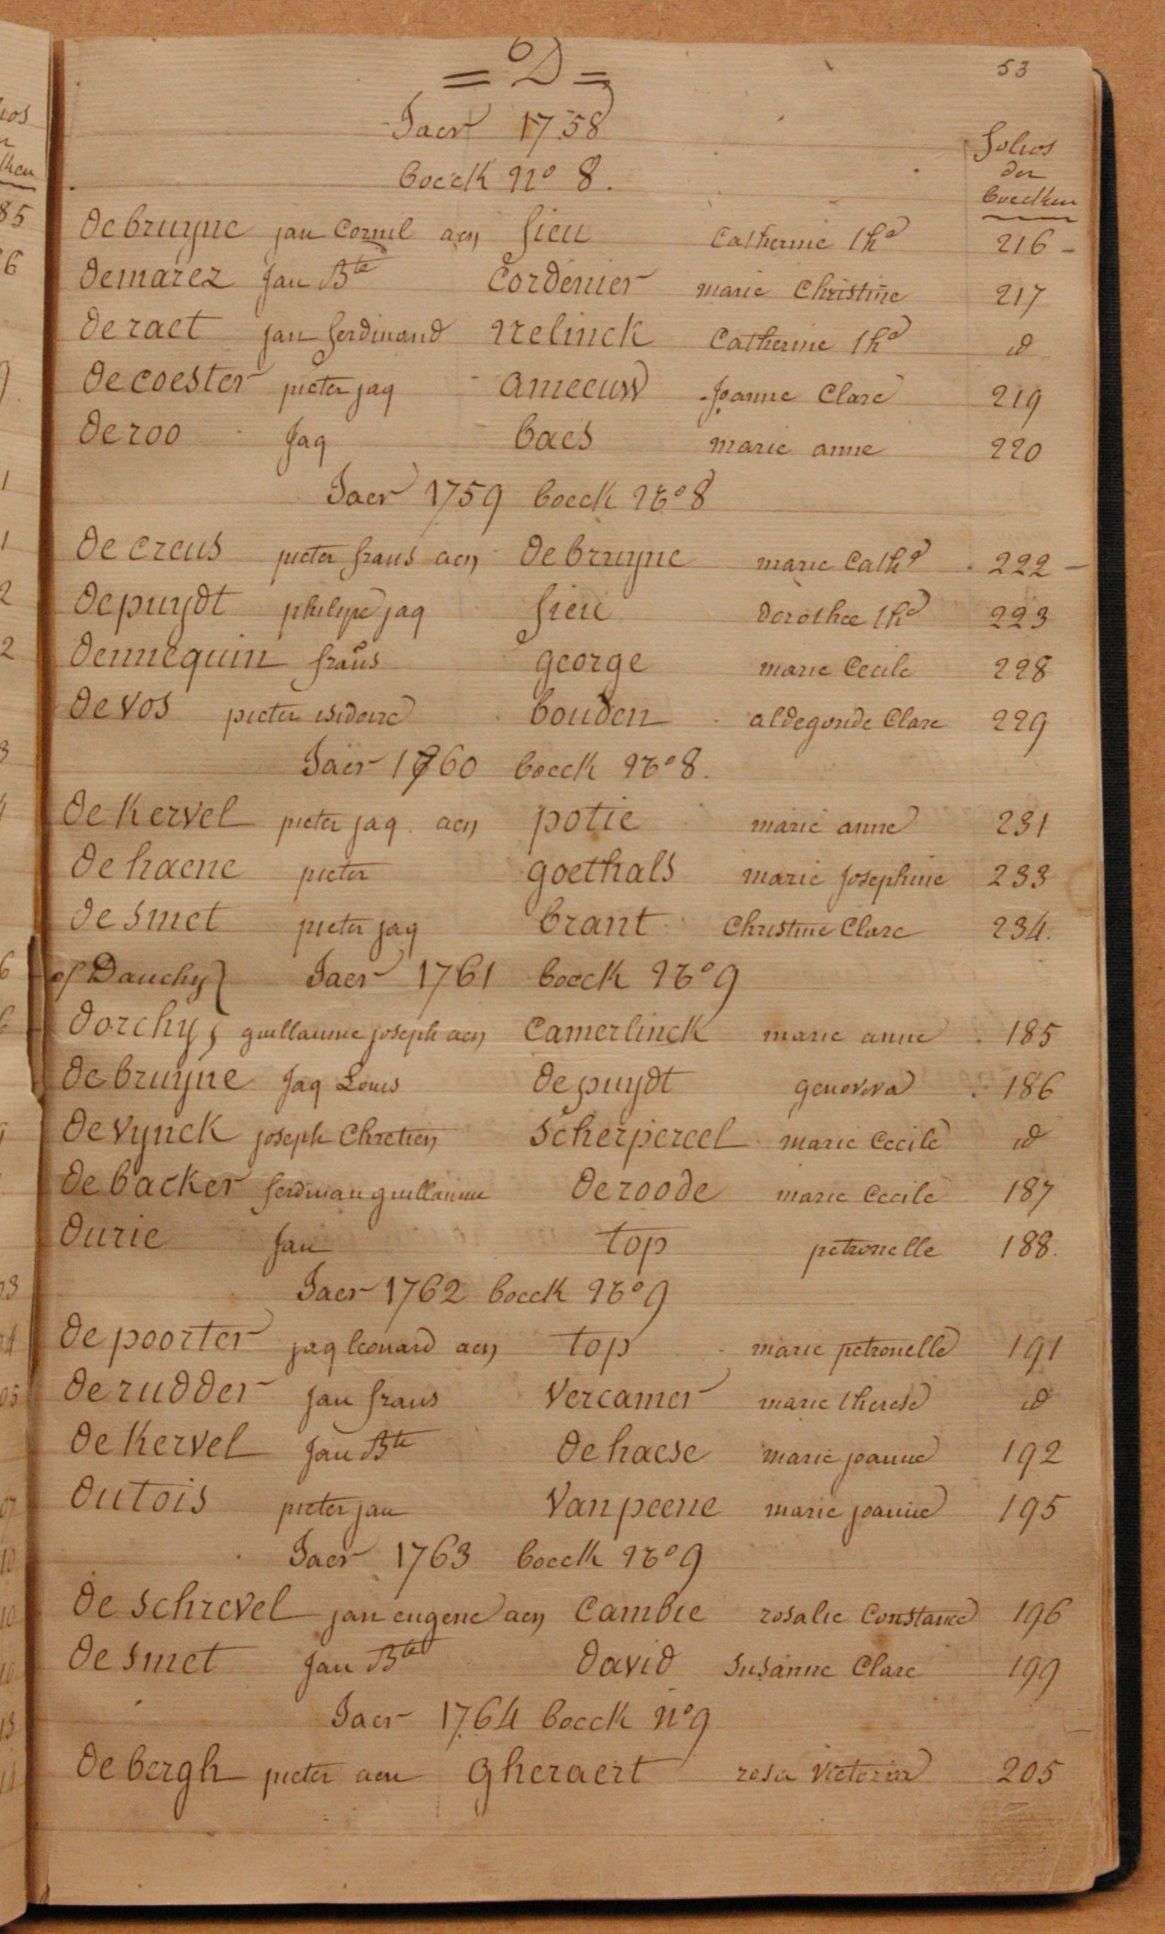 = D =
53
Jaer 1758
Folios
der
boecken
boeck No 8.
debruyne jan Cornil aen sieu Catherine thª 216 -
demarez Jan Bte Cordenier marie Christine 217
deraet jan ferdinand Nelinck Catherine thª id
decoester pieter jaq ameeuw Joanne Clare 219
deroo Jaq baes marie anne 220
Jaer 1759 boeck No 8
decreus pieter frans aen debruyne marie Cathª 222 -
depuydt philipe jaq sieu dorothee thª 223
dennequin frans george marie Cecile 228
devos pieter isidoire bouden aldegonde Clare 229
Jaer 1760 boeck No 8.
dekervel pieter jaq aen potie marie anne 231
dehaene pieter goethals marie Josephine 233
desmet pieter jaq brant Christine Clare 234.
of Dauchy} Jaer 1761 boeck No 9
dorchy, guillaume joseph aen Camerlinck marie anne 185
debruyne Jaq Louis depuydt genoveva 186
devynck joseph Chretien scherpereel marie Cecile id
debacker ferdinan guillaume deroode marie Cecile 187
durie Jan top petronelle 188.
Jaer 1762 boeck No 9
depoorter jaq leonard aen top marie petronelle 191
derudder jan frans Vercamer marie therese id
dekervel Jan Bte dehaese marie joanne 192
dutois pieter jan Vanpeene marie joanne 195
Jaer 1763 boeck No 9
deschrevel jan eugene aen Cambie rosalie Constance 196
desmet Jan Bte david Susanne Clare 199
Jaer 1764 boeck No 9
debergh pieter aen gheraert rosa Victoria 205